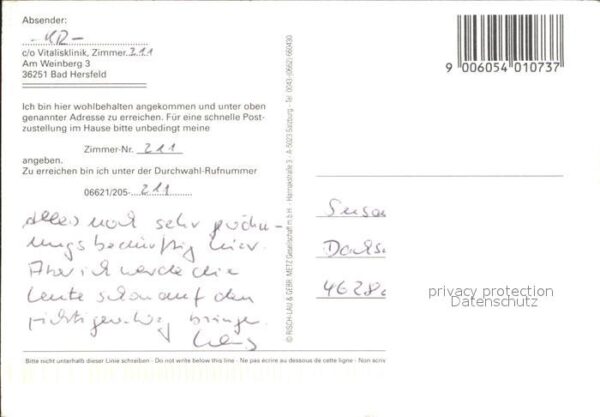 Absender:
-KR-
c/o Vitalisklinik, Zimmer 211
Am Weinberg 3
36251 Bad Hersfeld
9 006054 010737
Ich bin hier wohlbehalten angekommen und unter oben
genannter Adresse zu erreichen. Für eine schnelle Post-
zustellung im Hause bitte unbedingt meine
Zimmer-Nr. 211
angeben.
Zu erreichen bin ich unter der Durchwahl-Rufnummer
06621/205- 211
Alles noch sehr
bedürftig hier.
Aber ich werde die
Leute schon auf den
bringen.
© RISCH-LAU & GEBR. METZ Gesellschaft m.b.H. - Harrakstraße 3 · A-5023 Salzburg - Tel. 0043-(0)662) 660430
Susa
4628
privacy protection
Datenschutz
Bitte nicht unterhalb dieser Linie schreiben - Do not write below this line - Ne pas écrire au dessous de cette ligne - Non scriv